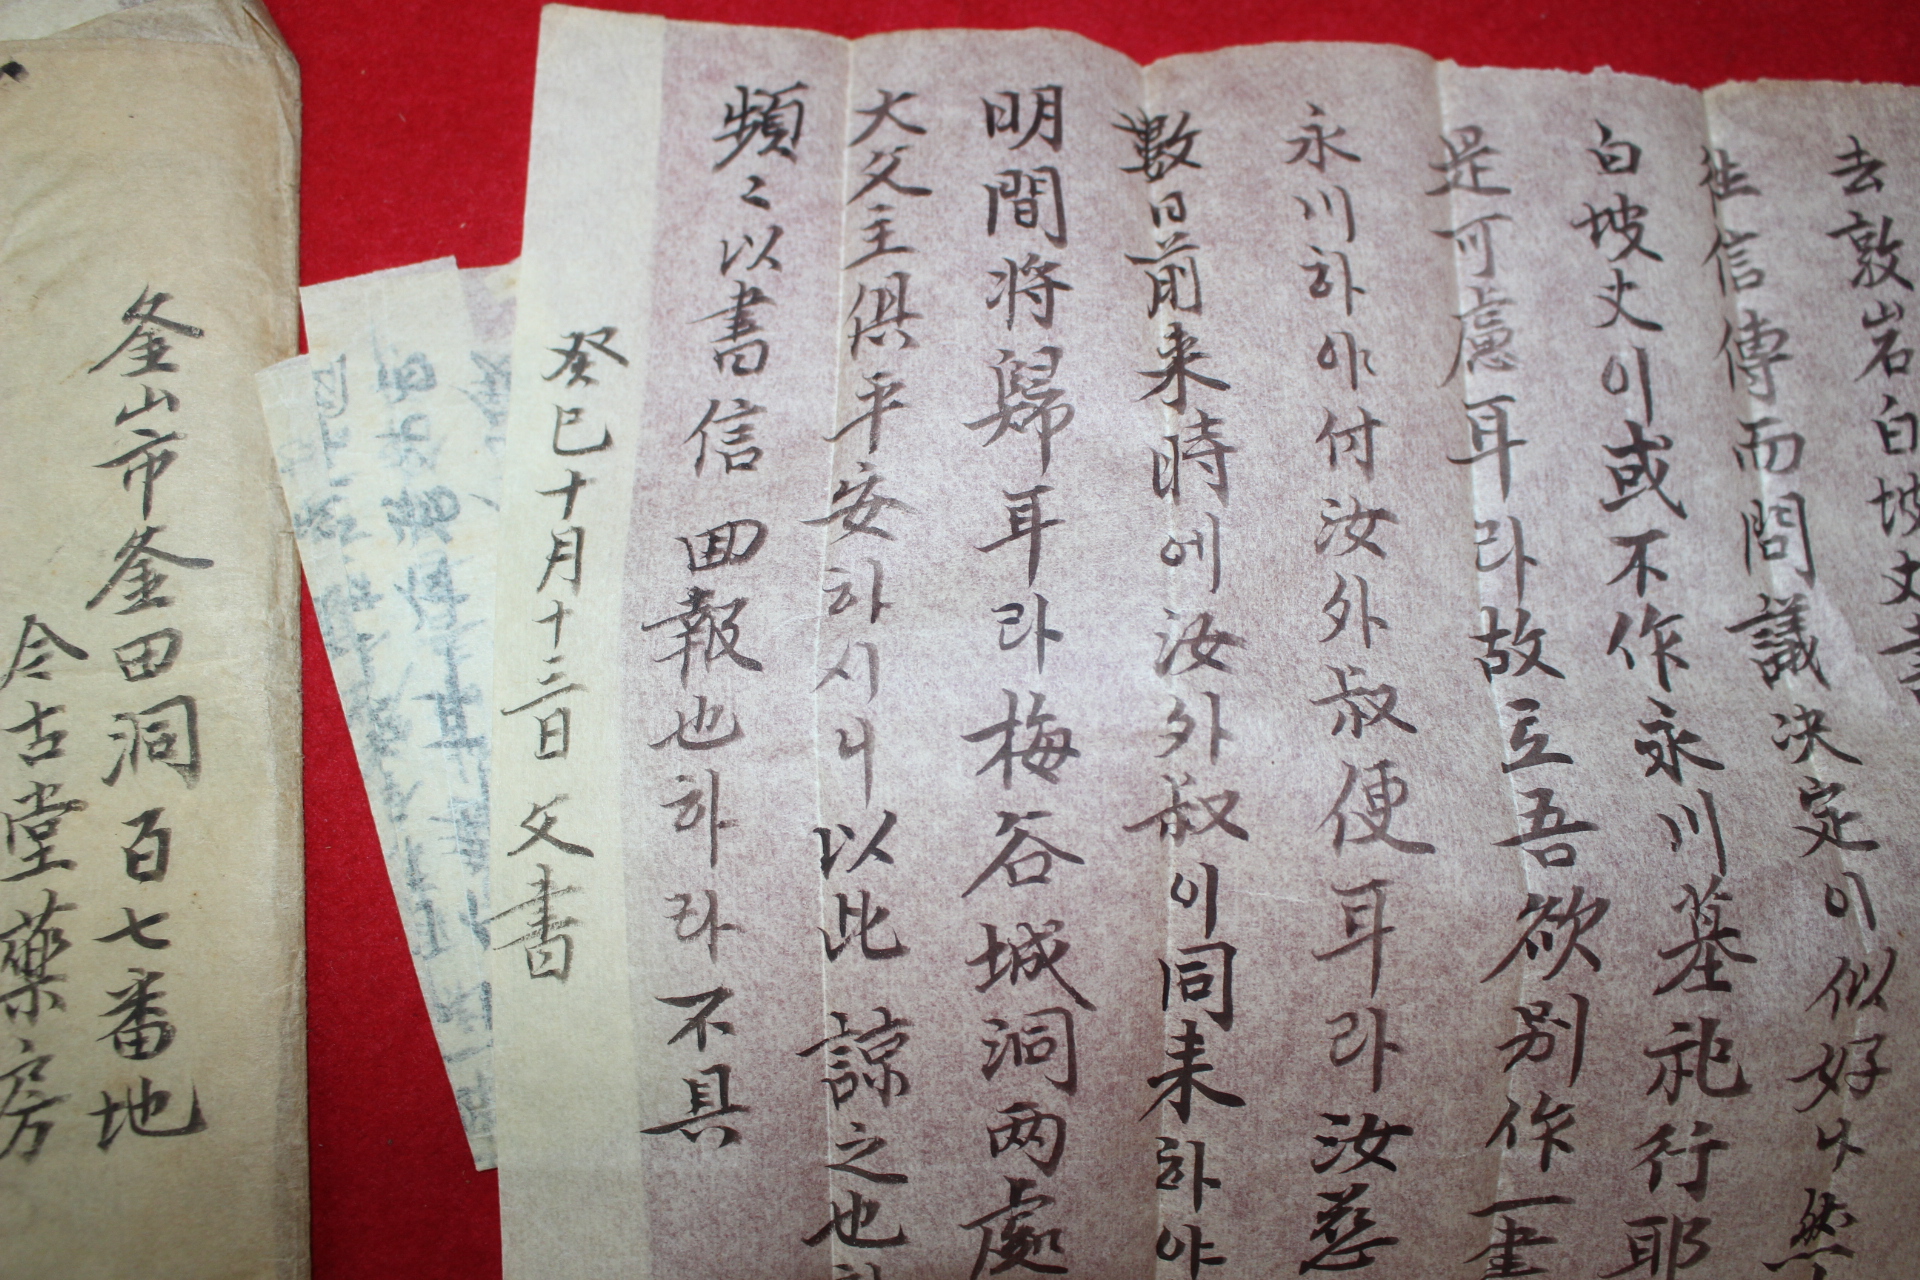 去敦岩白坡丈
往信傳而問議決定이似好나然
白坡丈이或不作永川墓祀行耶
是可慮耳라故立吾欲別作一書
永川하야付汝外叔便耳라汝慈
數日前來時에汝外叔이同來하야
明間將歸耳라梅谷城洞两處
大父主俱平安하시니以此諒之也
頻〻以書信回報也하라不具
癸巳十月十三日父書
釜山市釜田洞百七番地
今古堂藥房